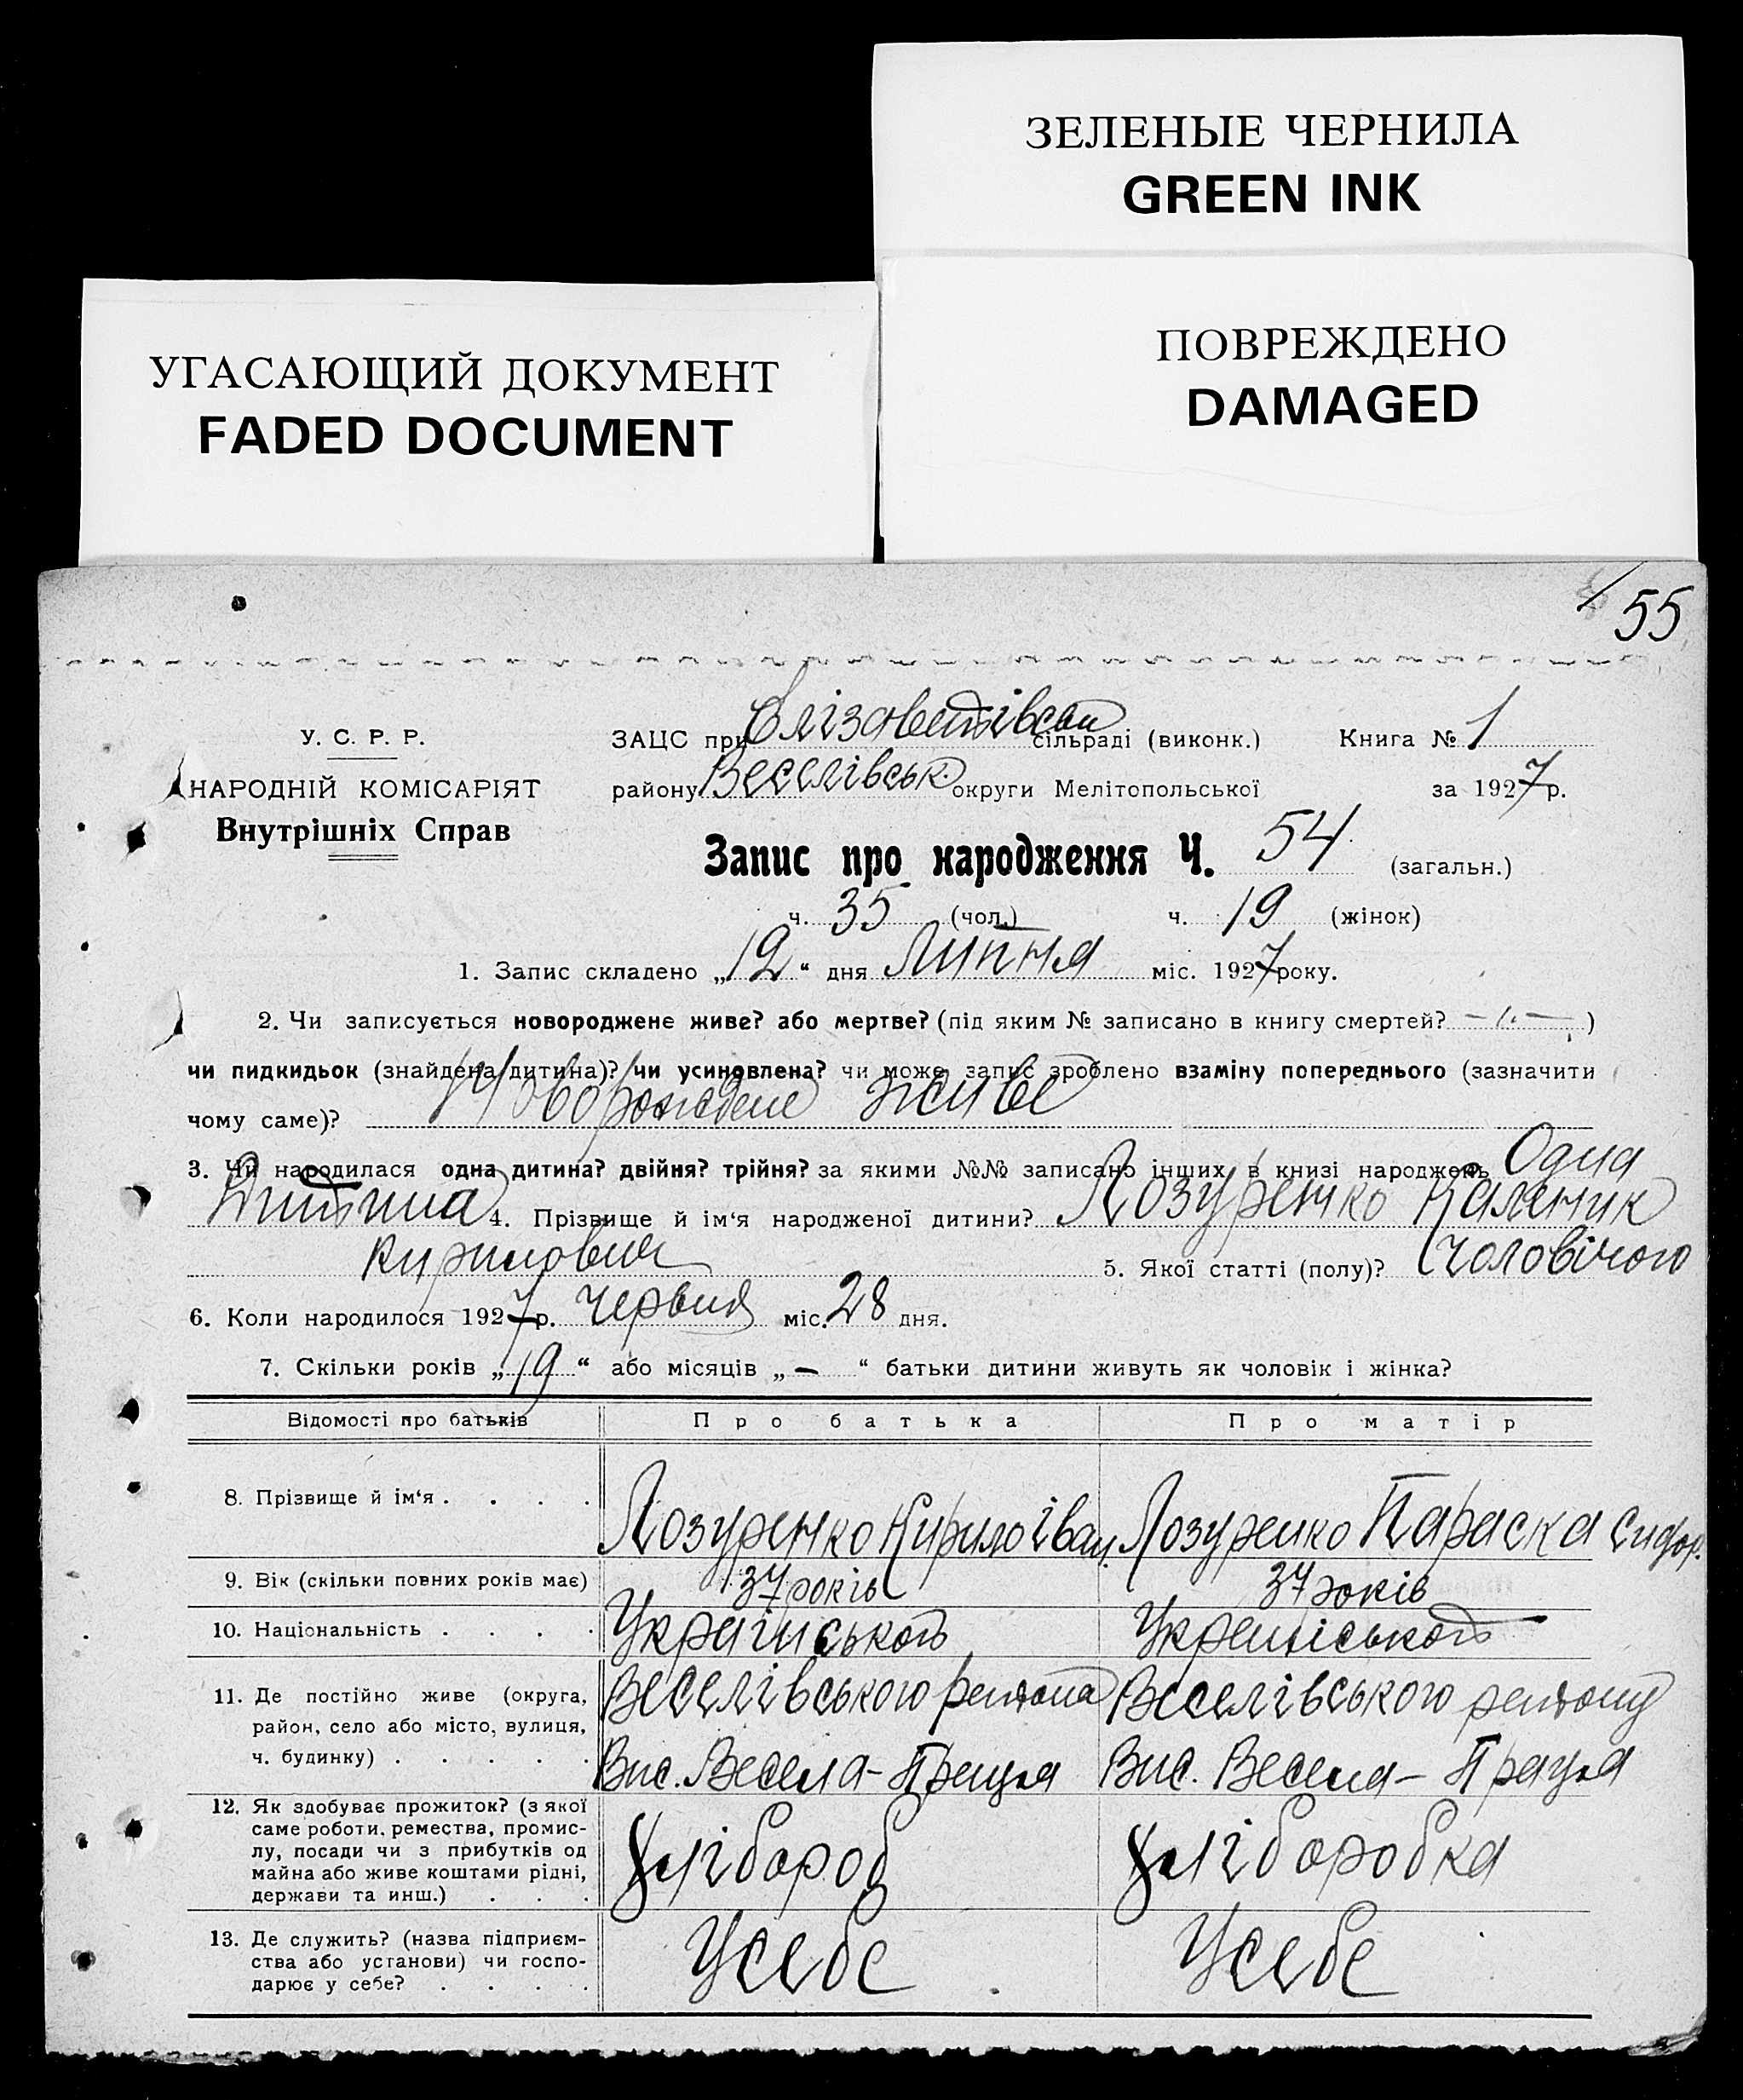 ЗЕЛЕНЫЕ ЧЕРНИЛА
GREEN INK
УГАСАЮЩИЙ ДОКУМЕНТ
FADED DOCUMENT
ПОВРЕЖДЕНО
DAMAGED
55
У. С. Р. Р.
НАРОДНІЙ КОМІСАРІЯТ
Внутрішніх Справ
ЗАЦС при Єлізаветівськ сільраді (виконк.) Книга № 1
району Веселівськ. округи Мелітопольської за 1927 р.
Запис про народження Ч. 54 (загальн.)
ч. 35 (чол.) ч. 19 (жінок)
1. Запис складено „12“ дня Липня міс. 1927 року.
2. Чи записується новороджене живе? або мертве? (під яким № записано в книгу смертей? — )
чи пидкидьок (знайдена дитина)? чи усиновлена? чи може запис зроблено взаміну попереднього (зазначити
чому саме)? Новорождене живе
3. Чи народилася одна дитина? двійня? трійня? за якими №№ записано інших в книзі народжень Одна
Дитина 4. Прізвище й ім‘я народженої дитини? Лозуренко Каленик
Кирилович 5. Якої статті (полу)? Чоловічого
6. Коли народилося 1927 р. Червня міс. 28 дня.
7. Скільки років „19“ або місяців „—“ батьки дитини живуть як чоловік і жінка?
Відомості про батьків Про батька Про матір
8. Прізвище й ім‘я . . . . Лозуренко Кирило Іван. Лозуренко Параска Сидор.
9. Вік (скільки повних років має) 37 років 37 років
10. Національність . . . . Українського Українського
11. Де постійно живе (округа,
район, село або місто, вулиця,
ч. будинку) . . . . .
Веселівського району Веселівського району
Вис. Весела-Праця Вис. Весела-Праця
12. Як здобуває прожиток? (з якої
саме роботи, ремества, промис-
лу, посади чи з прибутків од
майна або живе коштами рідні,
держави та инш.) . . .
Хлібороб Хліборобка
13. Де служить? (назва підприєм-
ства або установи) чи госпо-
дарює у себе? . . . .
У себе У себе